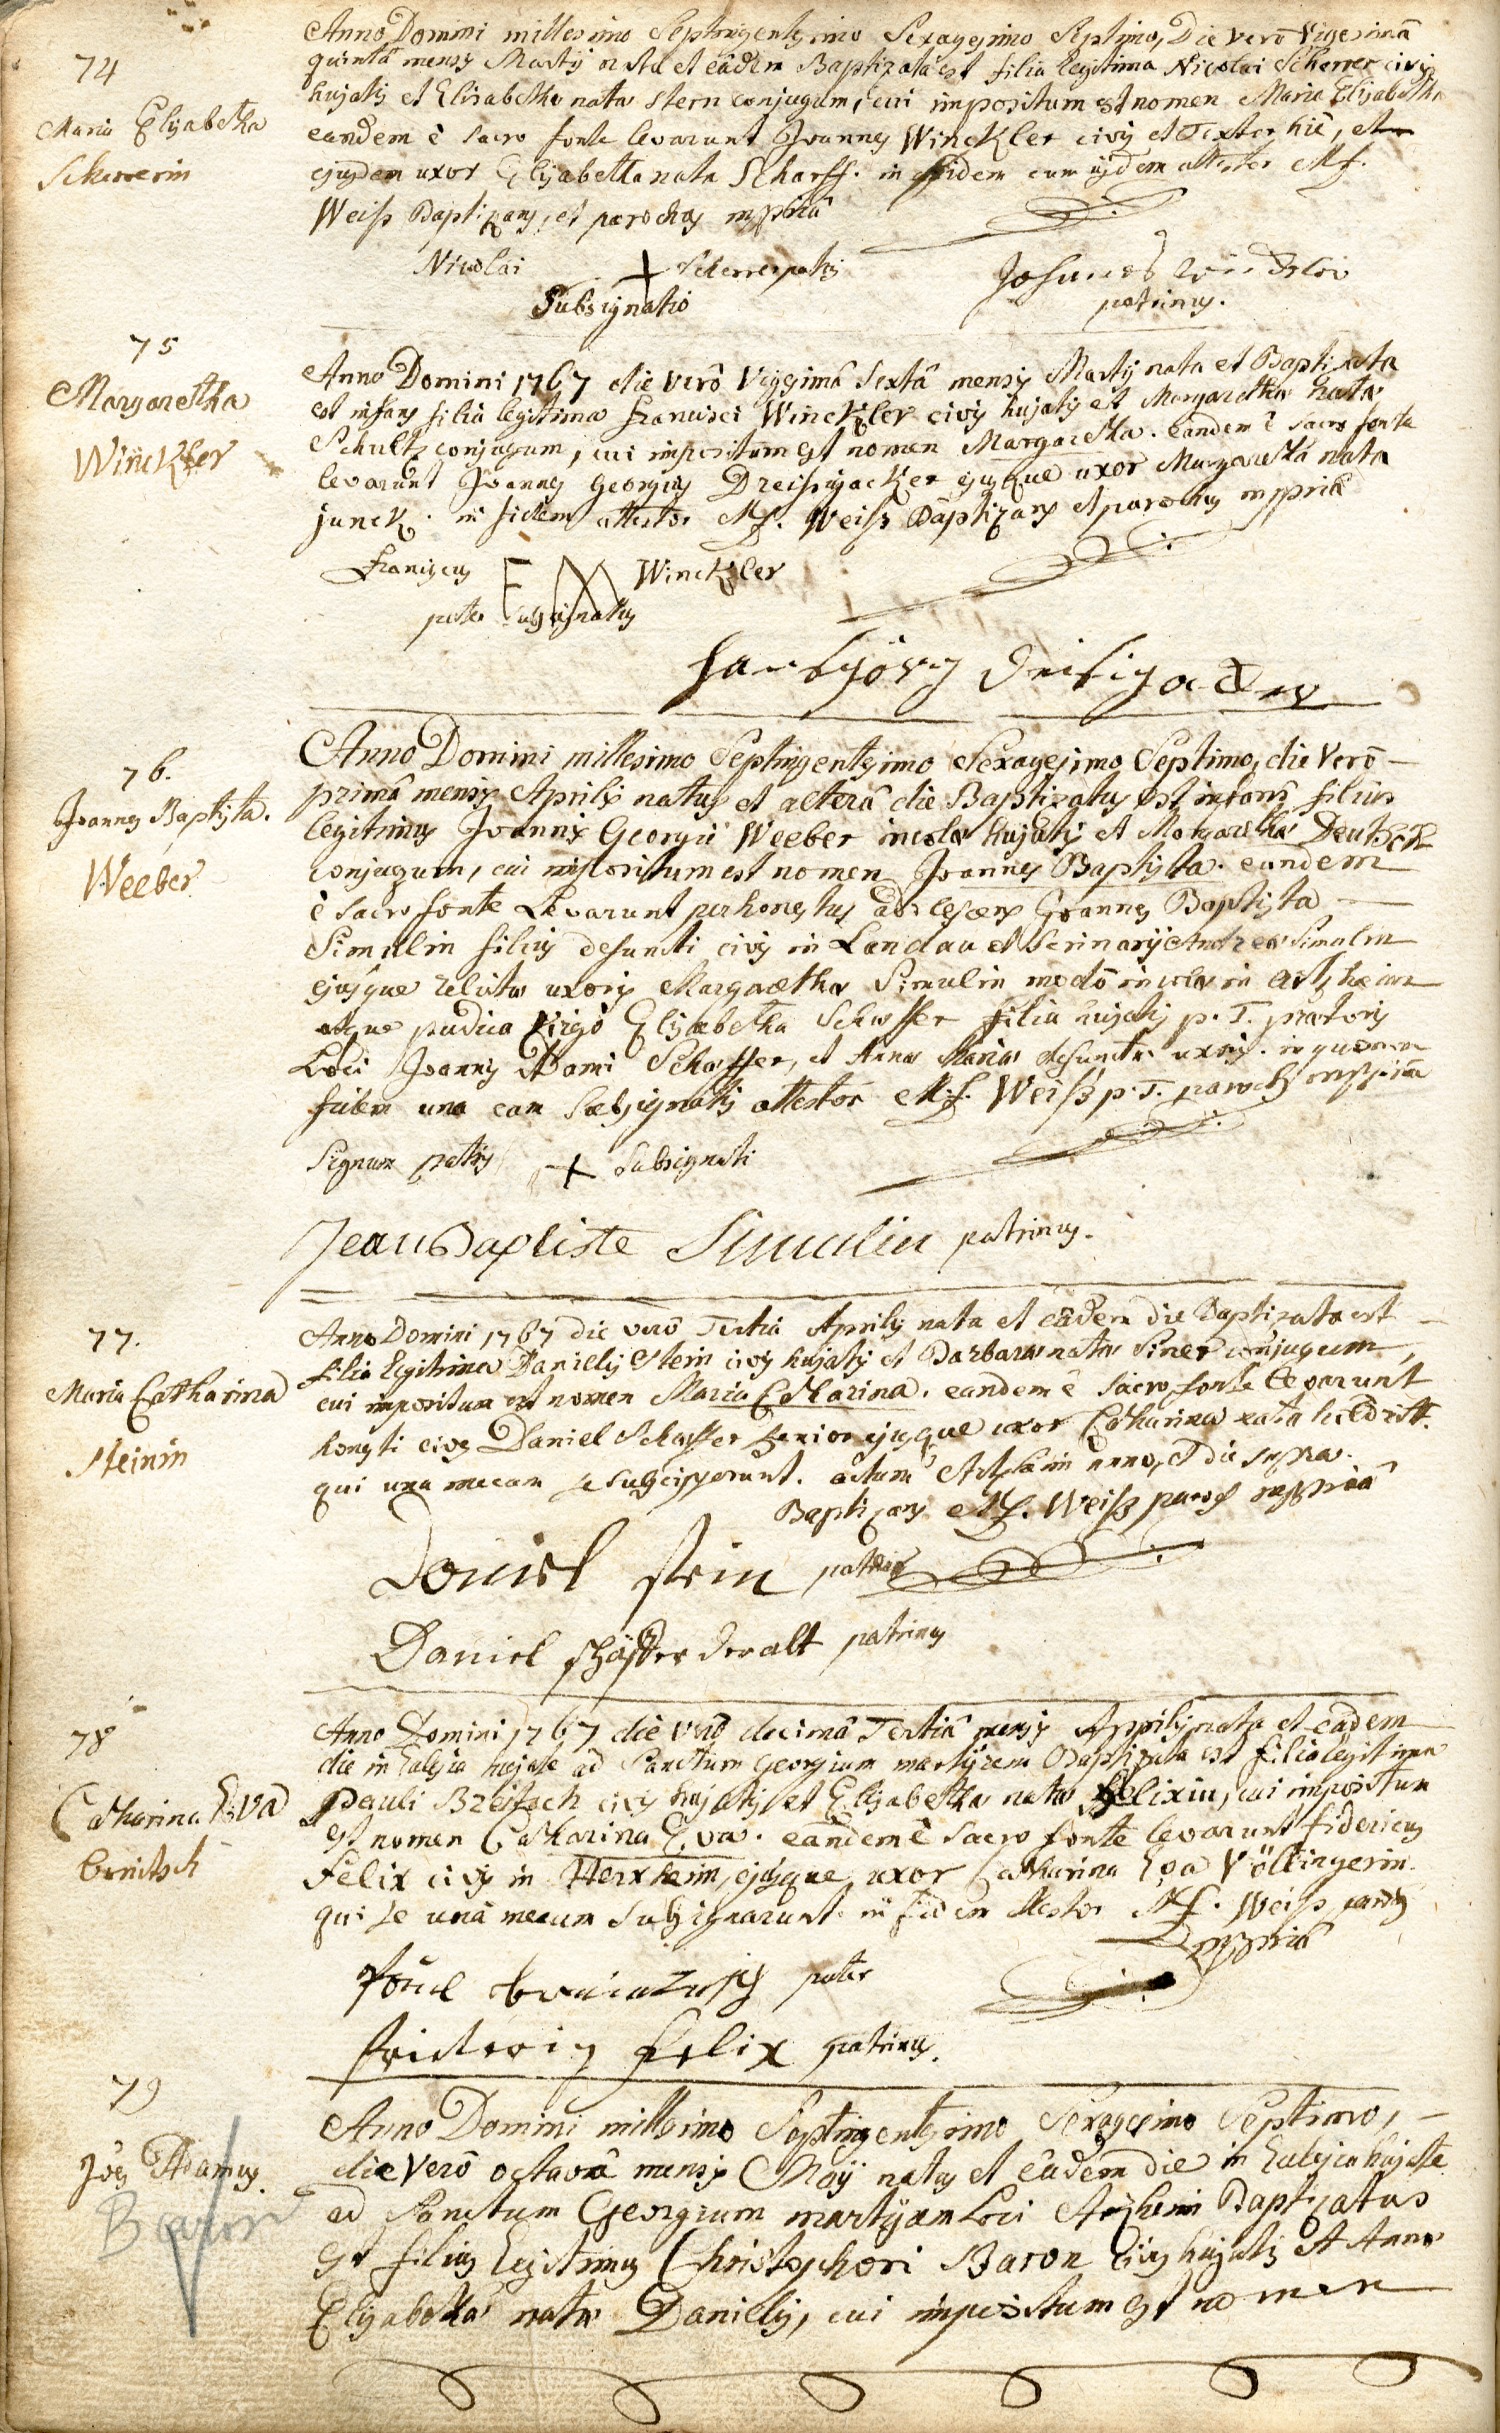 74
Maria Elisabetha
Scherrerin
Anno Domini millesimo Septingentesimo Sexagesimo Septimo, Die verò Vigesimâ
quintâ mensis Martij nata et eâdem Baptizata est filia legitima Nicolai Scherrer civis
hujatis et Elisabetha nata Stern conjugum, cui impositum est nomen Maria Elisabetha
eandem è sacro fonte levarunt Joannes Winckler civis et Textor hic, et
ejusdem uxor Elisabetha nata Scharff. in fidem cum ijsdem attestor M f.
Weiss Baptizans, et parochus mppriâ
Nicolai + Scherrer patris
Subsignatio
Johannes
patrinus.
75
Margaretha
Winckler
Anno Domini 1767 die verô Vigesimâ Sextâ mensis Martij nata et Baptizata
est infans filia legitima Francisci Winckler civis hujatis et Margaretha nata
Schultz conjugum, cui impositum est nomen Margaretha. eandem è sacro fonte
levarunt Joannes Georgius Dreisigacker ejusque uxor Margaretha nata
junck. in fidem attestor M f. Weiss Baptizans et parochus mppriâ
Franciscus F W Winckler
pater subsignatus
Hansgörg Dreisigacker
76.
Joannes Baptista.
Weeber
Anno Domini millesimo Septingentesimo Sexagesimo Septimo, die verô
primâ mensis Aprilis natus et alterâ die Baptizatus est infans filius
legitimus Joannis Georgii Weeber incola hujatis et Margaretha Deutsch
conjugum, cui impositum est nomen Joannes Baptista. eundem
è sacro fonte Levarunt perhonestus adolescens Joannes Baptista
Simulin filius defuncti civis in Landau et Andrea Simulin
ejusque relicta uxoris Margaretha Simulin modô incola in Artzheim
atque pudica Virgo Elisabetha Schaffer filia hujatis p. T. prætoris
Loci Joannis Adami Schaffer, et Anna Maria defuncta uxoris. in quorum
fidem una cum subsignatis attestor M. f. Weiss p. T. parochus mppriâ
Signum patris + Subsignati
Jean Baptiste Simulin patrinus.
77.
Maria Catharina
Steinin
Anno Domini 1767 die verô Tertia Aprilis nata et eâdem die Baptizata est
filia legitima Danielis Stein civis hujatis et Barbara nata Siner conjugum,
cui impositum est nomen Maria Catharina. eandem è sacro fonte levarunt
honesti cives Daniel Schaffer senior ejusque uxor Catharina nata
qui una mecum se subscripserunt. actum Artzheim anno, et die supra.
Baptizans M f. Weiss paroch mppriâ
Daniel stein pater
Daniel schäffer der alt patrinus
78
Catharina Eva
Breitsch
Anno Domini 1767 die verô decimâ Tertiâ mensis Apprilis nata et eâdem
die in Eclesia hujate ad Sanctum Georgium martyrem Baptizata est filia legitima
Pauli Breitsch civis hujatis et Elisabetha nata Felixin, cui impositum
est nomen Catharina Eva. eandem è sacro fonte levarunt fidericus
Felix civis in Herxheim, ejusque uxor Catharina Eva Völkingerin.
qui se unâ mecum subsignarunt in fidem attestor M f. Weiss paroch
mppriâ
pater
fridericg felix patrinus.
79
Joes Adamus.
Baron
Anno Domini millesimo Septingentesimo Sexagesimo Septimo,
die verô octavâ mensis Maij natus et eâdem die in Eclesia hujate
ad Sanctum Georgium martyrem Loci Arzheim Baptizatus
est filius legitimus Christophori Baron civis hujatis et Anna
Elisabetha nata Danielis, cui impositum est nomen